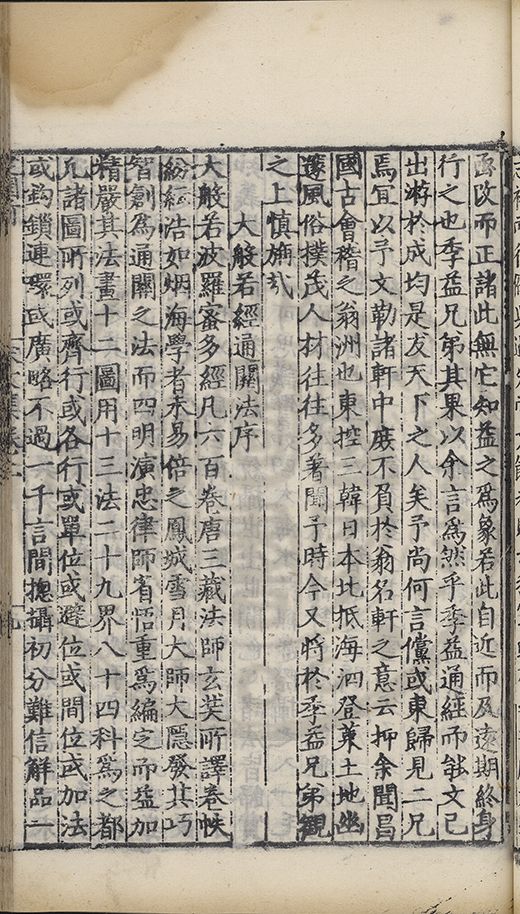 亟改而正諸此無它知益之爲象若此自近而及遠期終身
行之也季益兄弟其果以余言爲然乎季益通經而能文已
出游於成均是友天下之人矣予尚何言儻或東歸見二兄
焉冝以予文勒諸軒中庻不負於翁名軒之意云抑余聞昌
國古會稽之翁洲也東控三韓日本北抵海泗登萊土地幽
邃風俗撲茂人材往往多著聞于時今又將於季益兄弟觀
之上慎旃㢤
大般若經通關法序
大般若波羅蜜多經凡六百卷唐三藏法師玄奘所譯卷帙
紛紜浩如烟海學者未易倍之鳳城雪月大師大隱發其巧
智創爲通關之法而四明演忠律師省悟重爲編定而益加
精嚴其法畫十二圖用十三法二十九界八十四科爲之都
凡諸圖所列或齊行或各行或單位或避位或間位或加法
或鈎鎖連環或廣略不過一千言間揔攝初分難信解品一